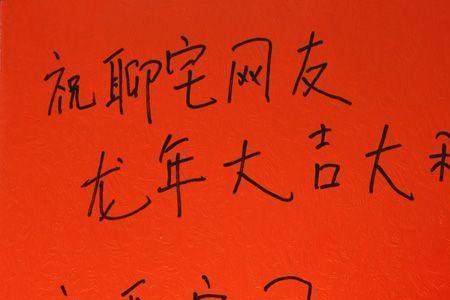 祝聊宅网友
龙年大吉大